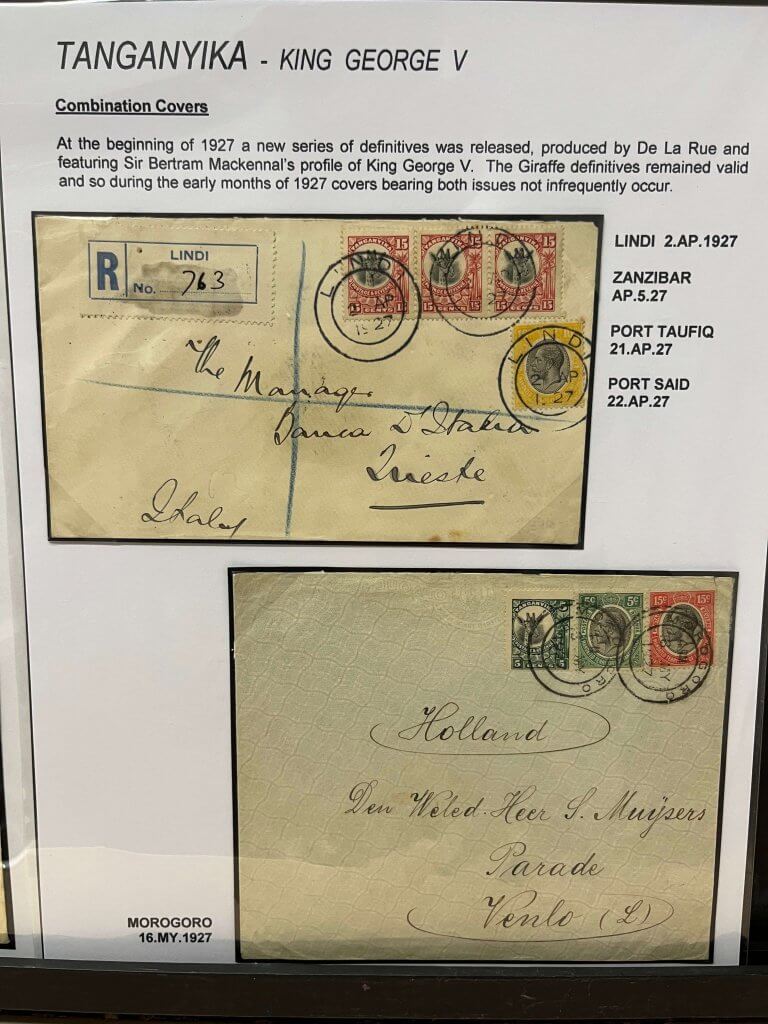 TANGANYIKA - KING GEORGE V
Combination Covers
At the beginning of 1927 a new series of definitives was released, produced by De La Rue and
featuring Sir Bertram Mackennal's profile of King George V. The Giraffe definitives remained valid
and so during the early months of 1927 covers bearing both issues not infrequently occur.
R
LINDI
No. 763
TANGANYIKA 15
15 15
LINDI
AP
1927
LINDI
2 AP
1927
The Manager
Banca D'Italia
Trieste
Italy
LINDI 2.AP.1927
ZANZIBAR
AP.5.27
PORT TAUFIQ
21.AP.27
PORT SAID
22.AP.27
TANGANYIKA
5 5
5c 5c
15c 15c
MOROGORO
Holland
Den Weled. Heer S. Muijsers
Parade
Venlo (L)
MOROGORO
16.MY.1927